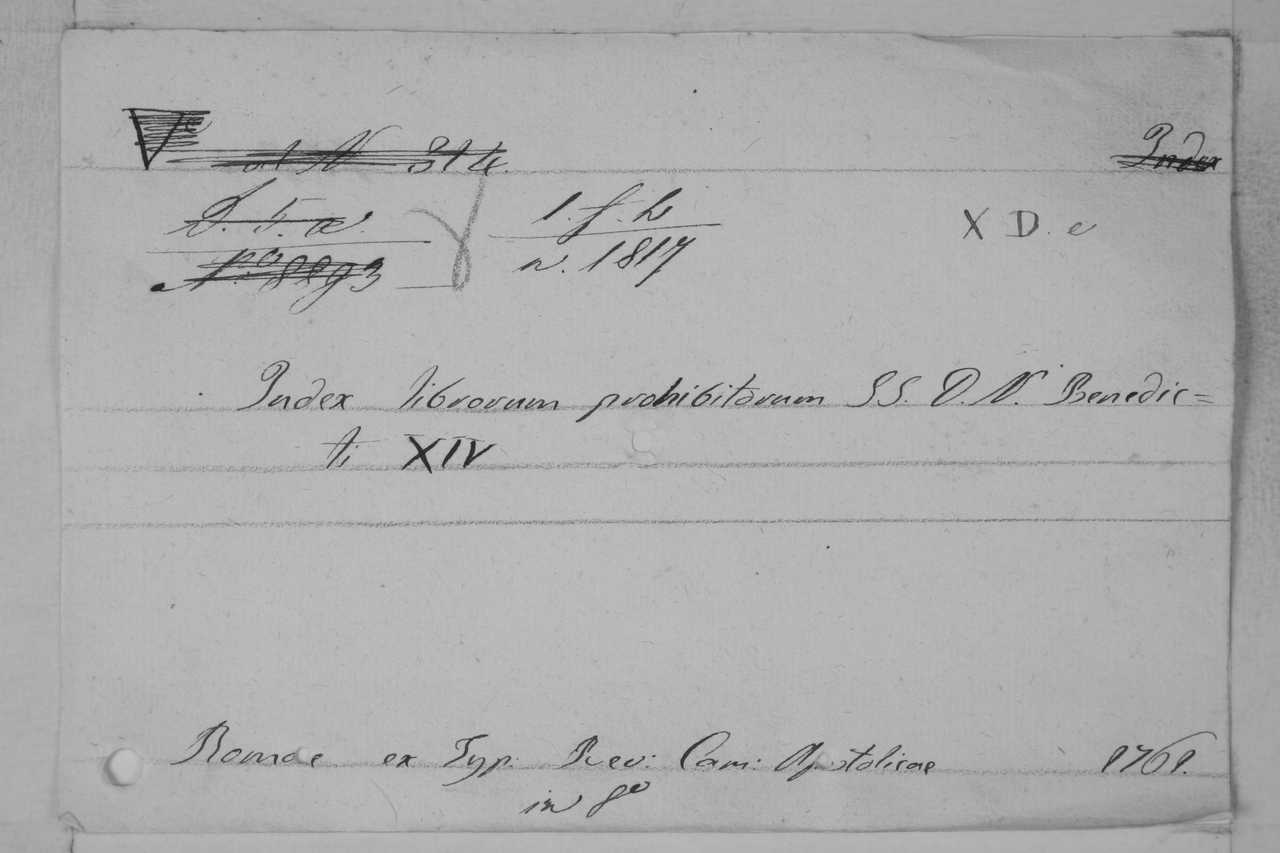 ad N 314.
Index
D. 5. a.
1. f. h
X D. e
N.o 8893
n. 1817
Index librorum prohibitorum SS. D. N. Benedic=
ti XIV
Romae ex Typ. Rev: Cam: Apostolicae 1761.
in 8o